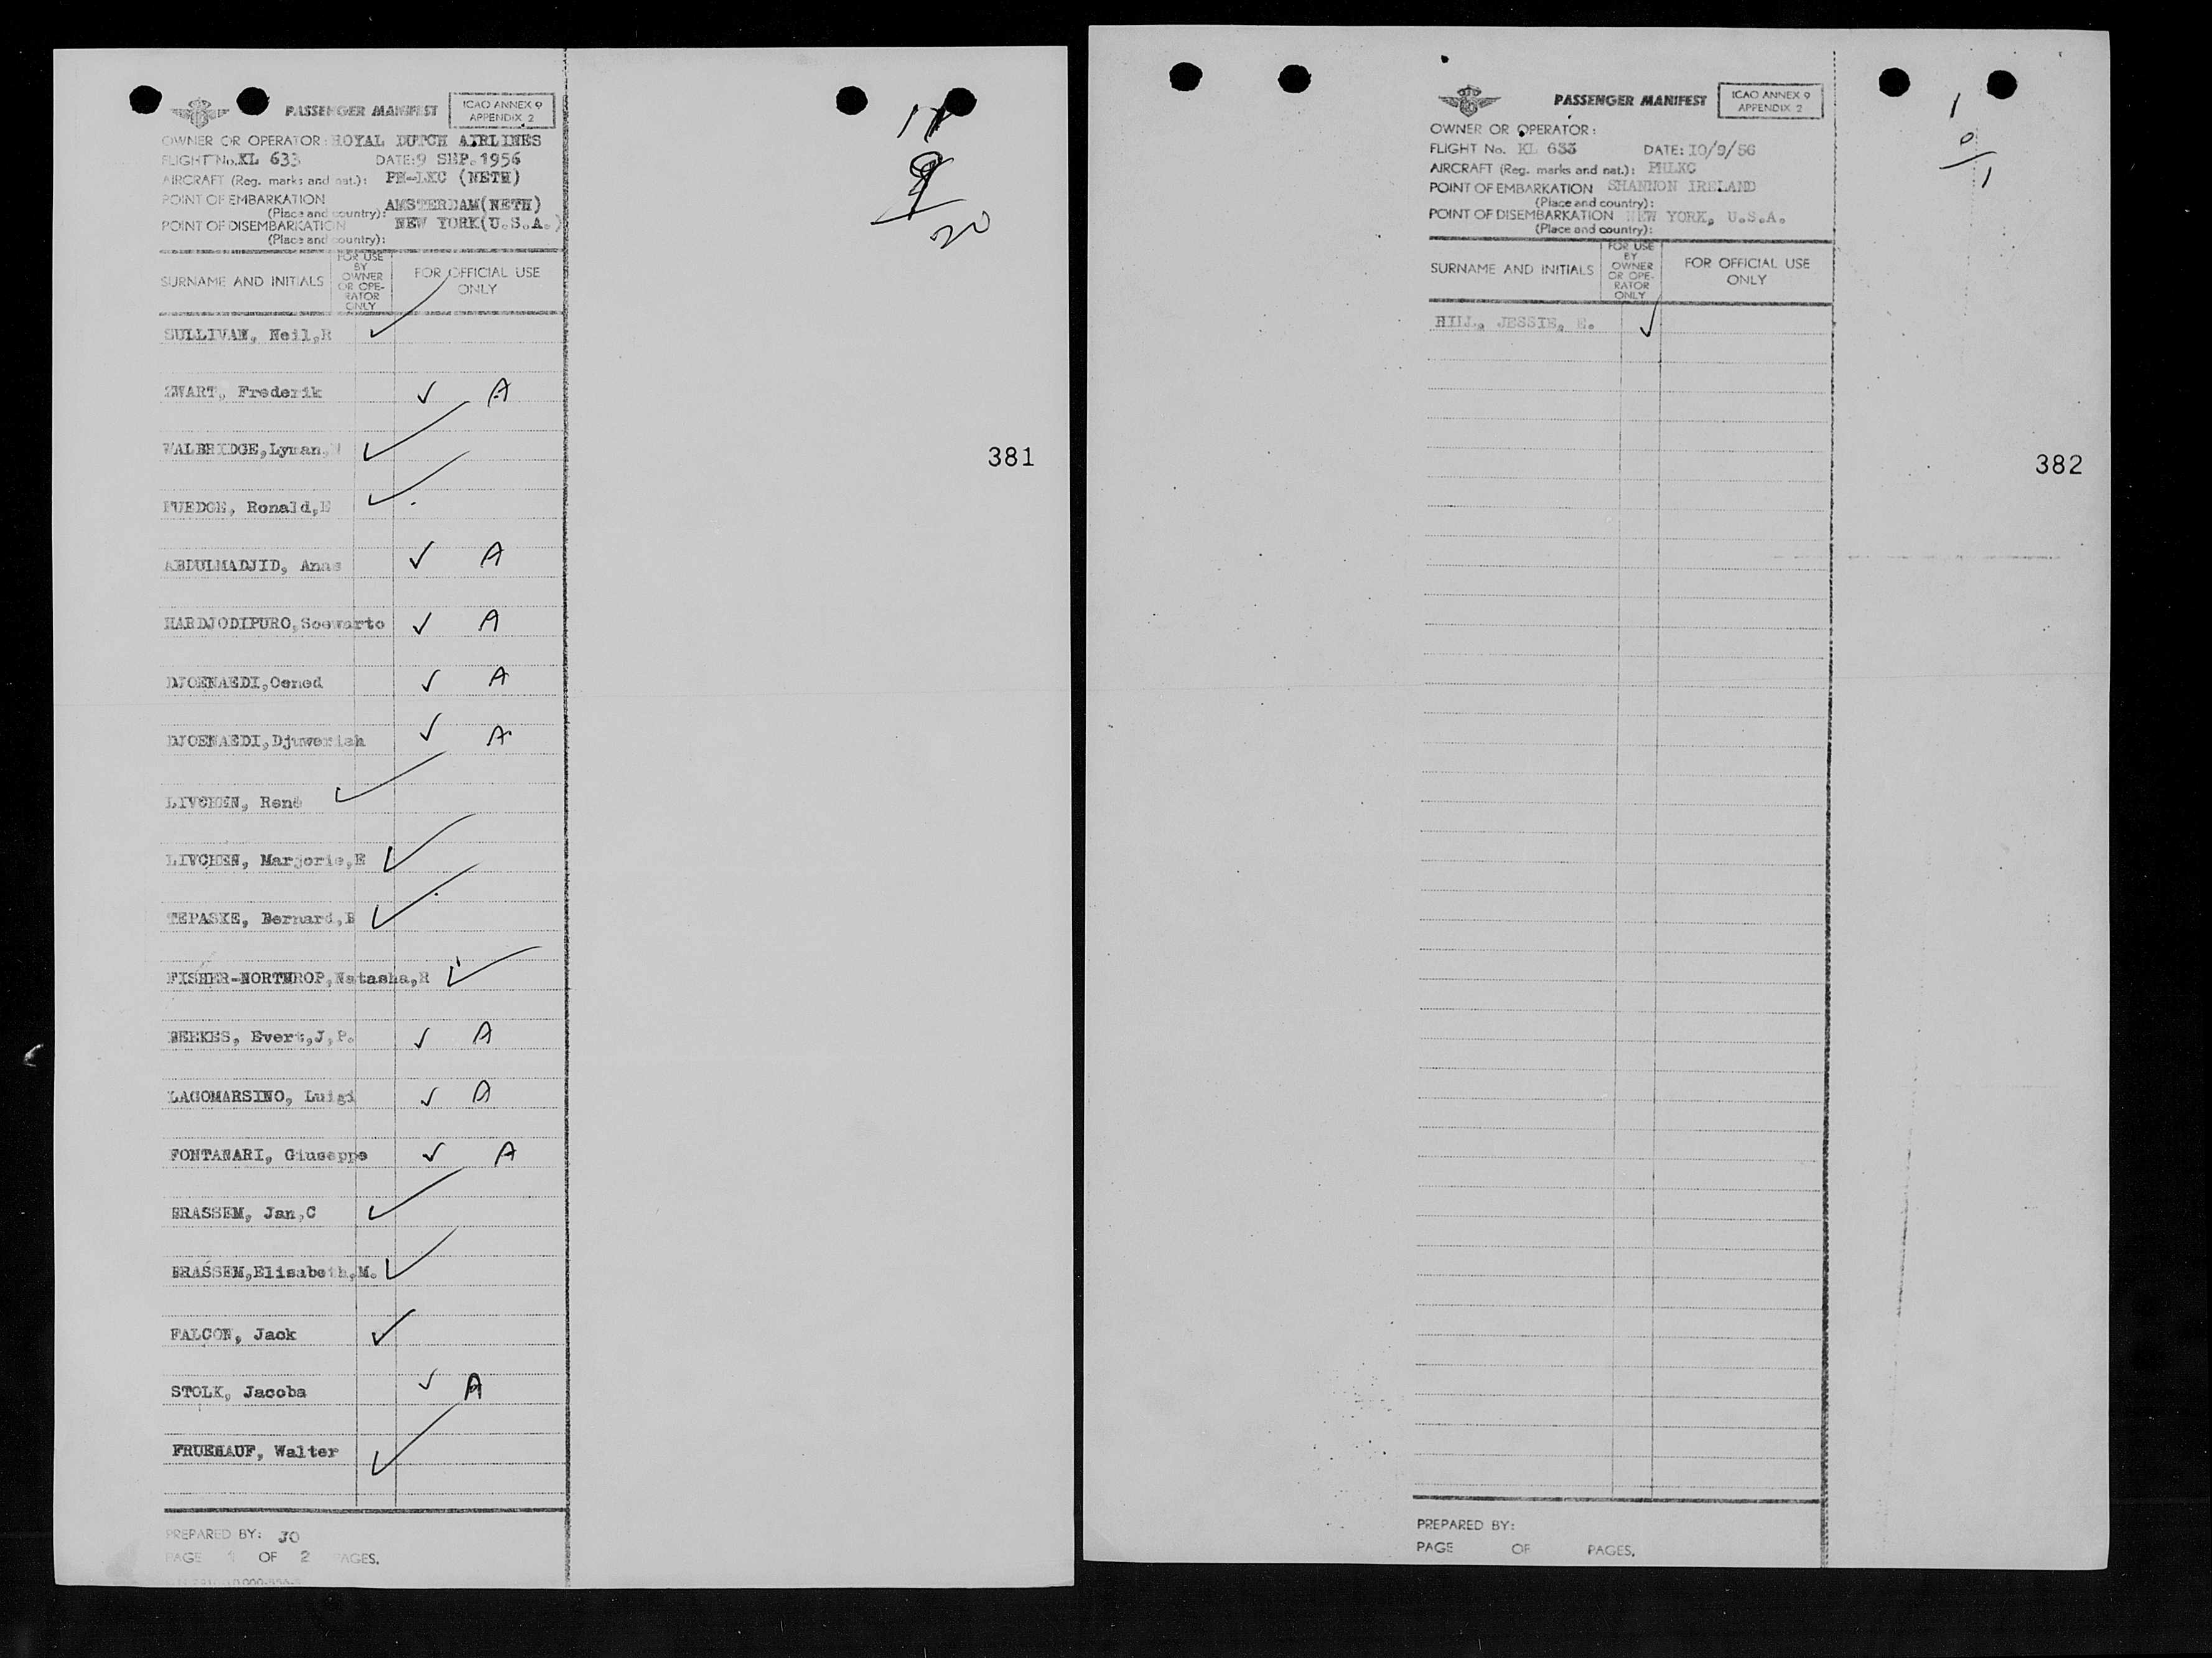 PASSENGER MANIFEST
ICAO ANNEX 9
APPENDIX 2
OWNER OR OPERATOR: ROYAL DUTCH AIRLINES
FLIGHT No. KL 633 DATE: 9 SEP. 1956
AIRCRAFT (Reg. marks and nat.): PH-LKC (NETH)
POINT OF EMBARKATION AMSTERDAM(NETH)
(Place and country):
POINT OF DISEMBARKATION NEW YORK(U.S.A.)
(Place and country):
SURNAME AND INITIALS
FOR USE BY OWNER OR OPE-RATOR ONLY
FOR OFFICIAL USE ONLY
11
9
20
SULLIVAN, Neil,R
ZWART, Frederik ✓ A
WALBRIDGE,Lyman,
Ronald,E
ABDULMADJID, Anas ✓ A
HARDJODIPURO,Soewarto ✓ A
DJOENAEDI,Oened ✓ A
DJOENAEDI,Djuweriah ✓ A
LIVCHEN, René
LIVCHEN, Marjorie,E
TEPASKE, Bernard,B
FISHER-NORTHROP,Natasha,R
Evert,J,P. ✓ A
LAGOMARSINO, Luigi ✓ A
FONTANARI, Giuseppe ✓ A
BRASSEM, Jan,C
BRASSEM,Elisabeth,M.
FALCON, Jack
STOLK, Jacoba ✓ A
FRUEHAUF, Walter
PREPARED BY: JO
PAGE 1 OF 2 PAGES.
381
PASSENGER MANIFEST
ICAO ANNEX 9
APPENDIX 2
OWNER OR OPERATOR:
FLIGHT No. KL 633 DATE: 10/9/56
AIRCRAFT (Reg. marks and nat.): PHLKC
POINT OF EMBARKATION SHANNON IRELAND
(Place and country):
POINT OF DISEMBARKATION NEW YORK, U.S.A.
(Place and country):
SURNAME AND INITIALS
FOR USE BY OWNER OR OPE-RATOR ONLY
FOR OFFICIAL USE ONLY
1
0
1
HILL, JESSIE, E. ✓
PREPARED BY:
PAGE OF PAGES.
382